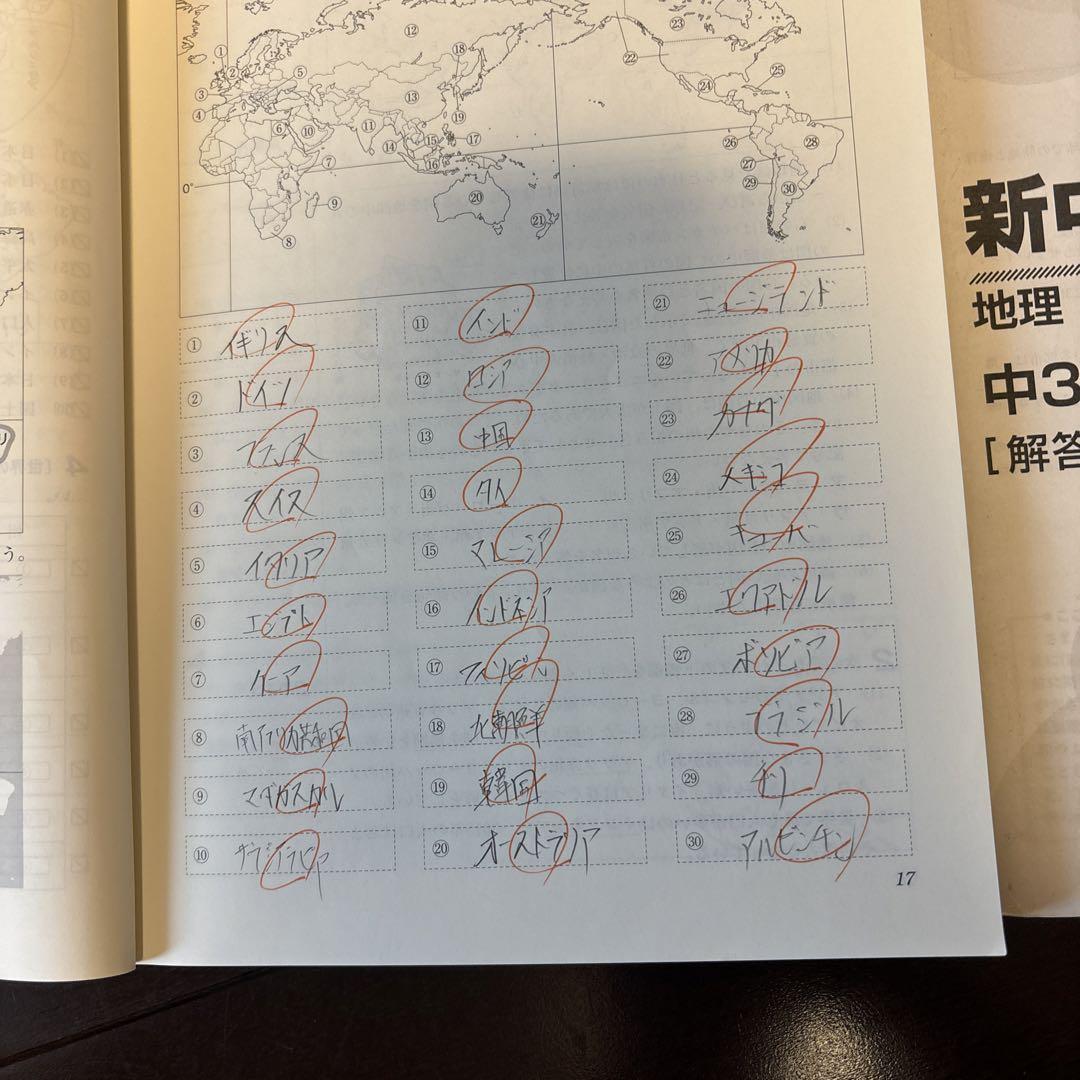 ⑫
㉓
①
②
⑱
㉒
⑤
㉕
③
⑬
㉔
④
⑲
⑥
⑩
⑪
⑮
⑰
㉖
㉘
⑭
⑦
⑯
㉗
0°
㉙
㉚
⑨
⑳
㉑
⑧
① イギリス
② ドイツ
③ フランス
④ スイス
⑤ イタリア
⑥ エジプト
⑦ ケニア
⑧ 南アフリカ共和国
⑨ マダガスカル
⑩ サウジアラビア
⑪ インド
⑫ ロシア
⑬ 中国
⑭ タイ
⑮ マレーシア
⑯ インドネシア
⑰ フィリピン
⑱ 北朝鮮
⑲ 韓国
⑳ オーストラリア
㉑ ニュージランド
㉒ アメリカ
㉓ カナダ
㉔ メキシコ
㉕ キューバ
㉖ エクアドル
㉗ ボリビア
㉘ ブラジル
㉙ チリ
㉚ アルゼンチン
17
う。
新中
地理
中3
[解答